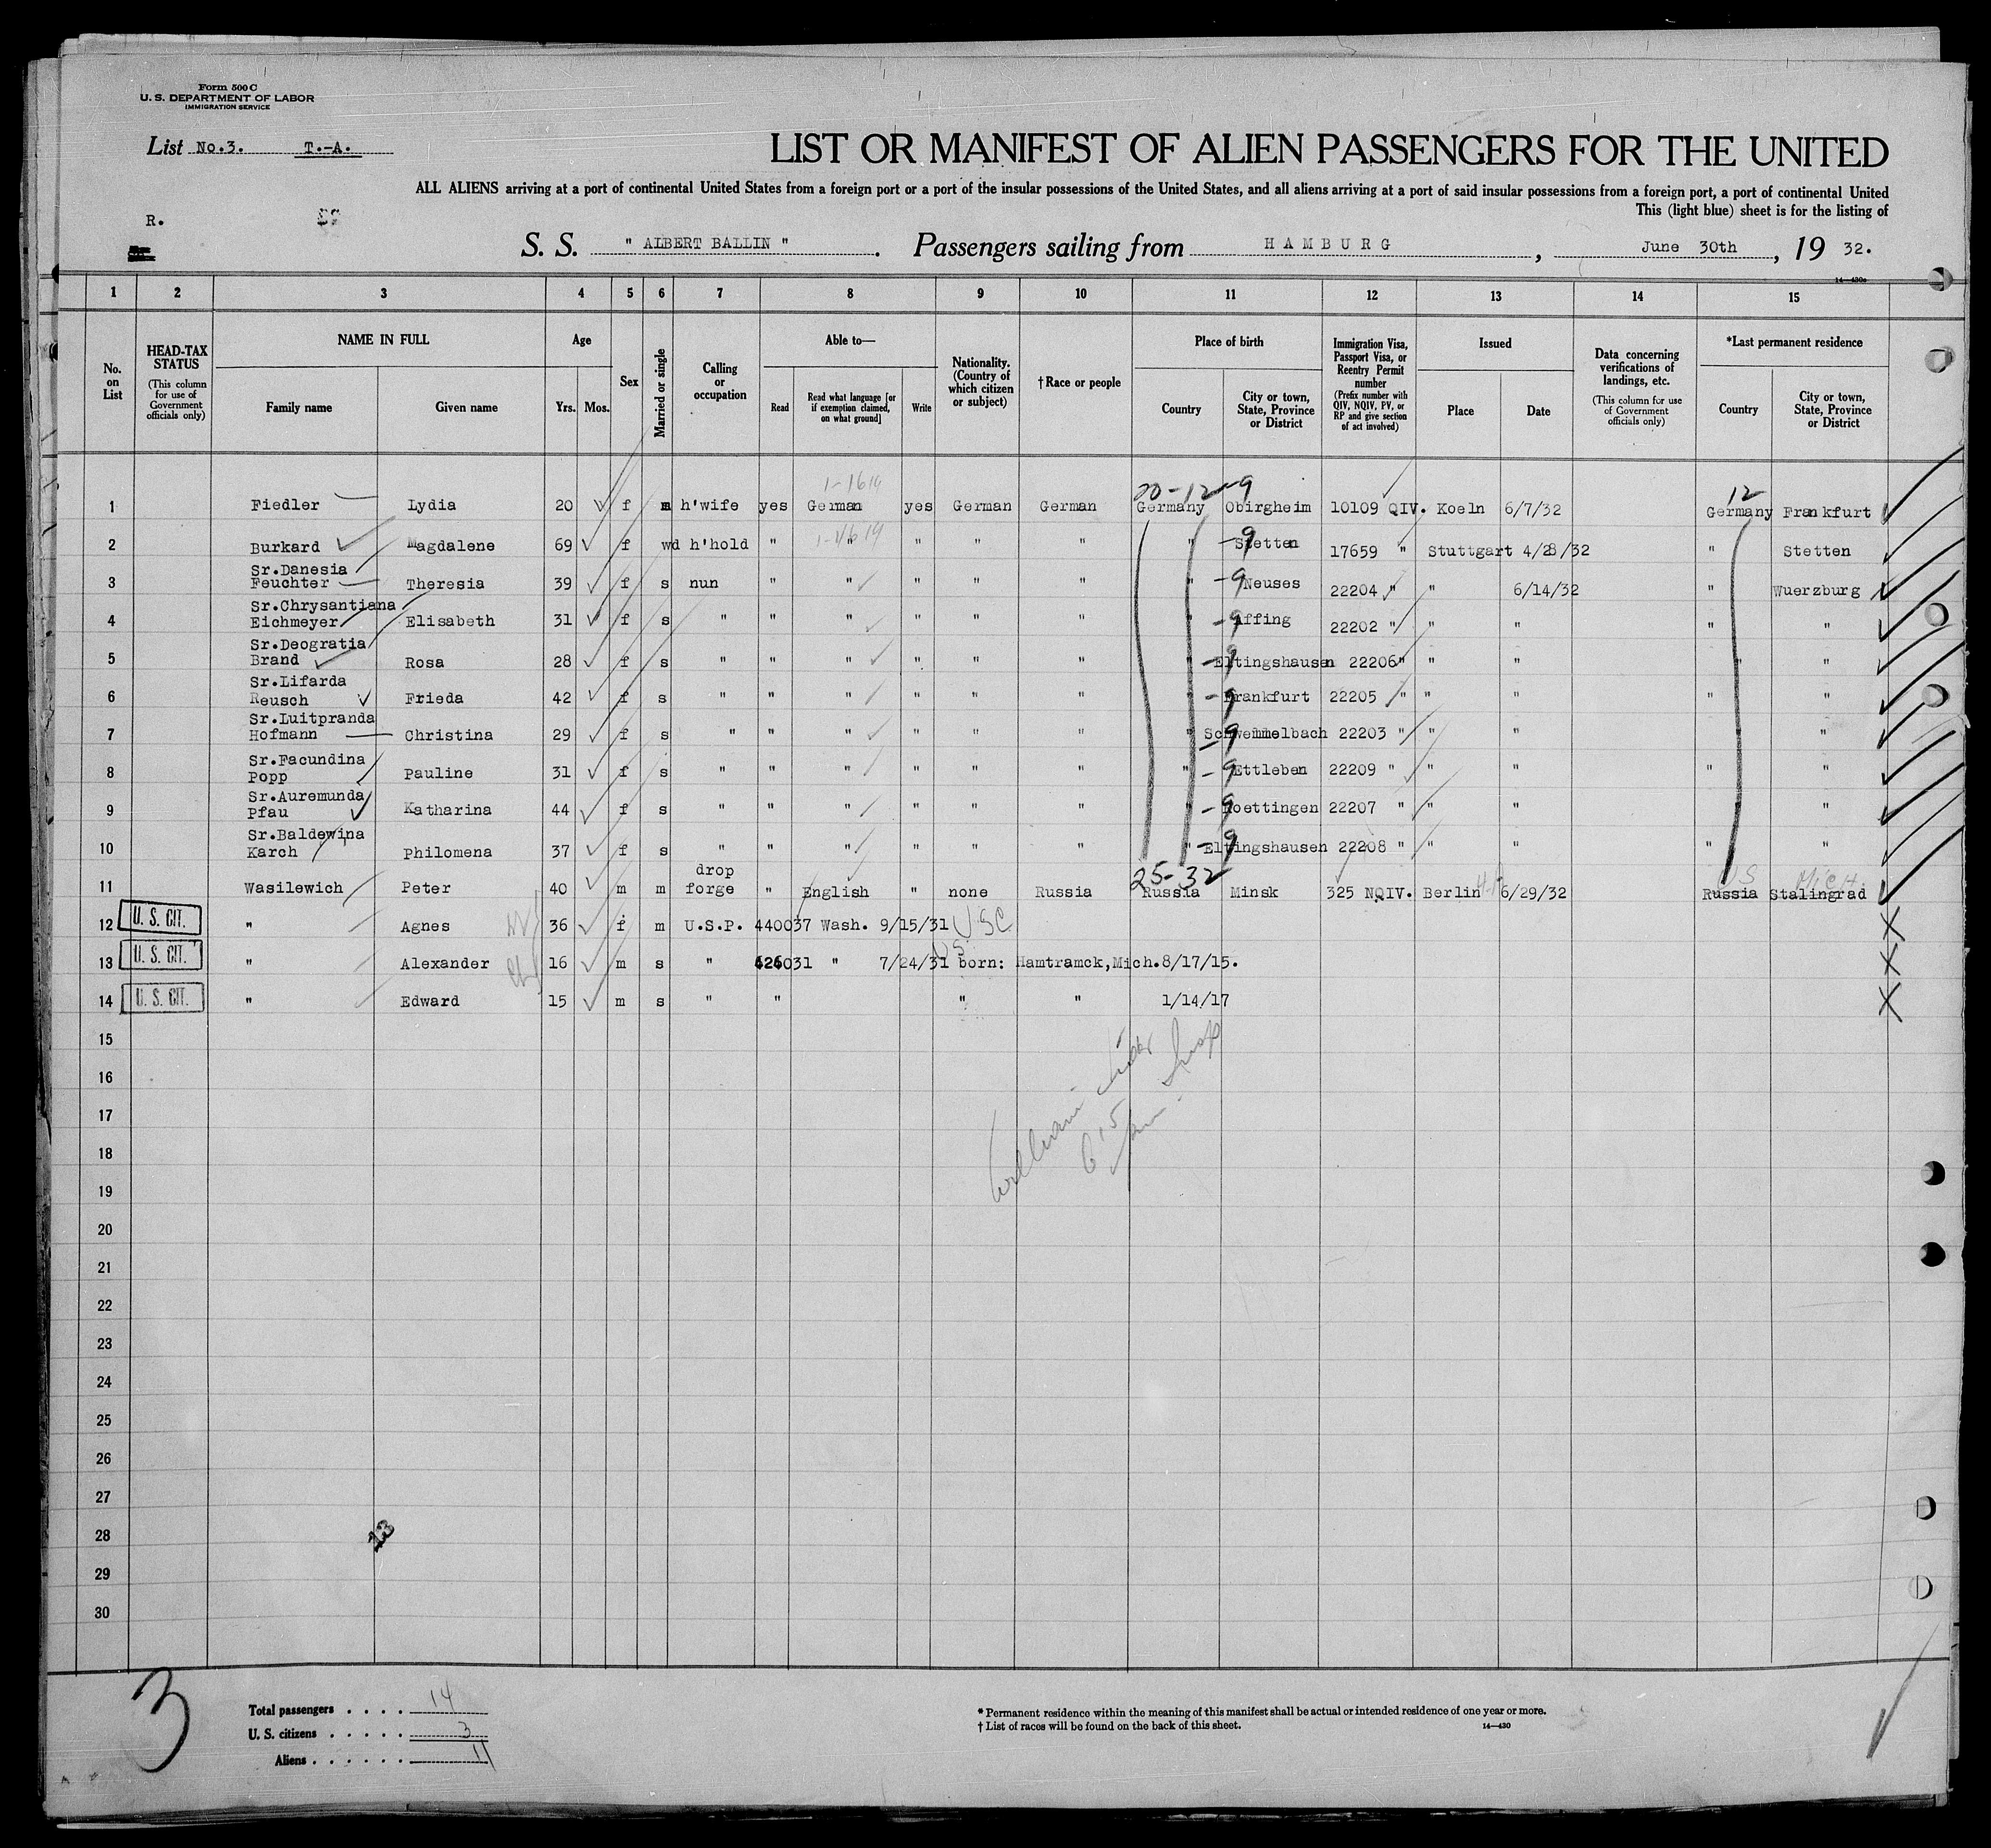 Form 500 C
U. S. DEPARTMENT OF LABOR
IMMIGRATION SERVICE
List No.3. T.-A.
LIST OR MANIFEST OF ALIEN PASSENGERS FOR THE UNITED
ALL ALIENS arriving at a port of continental United States from a foreign port or a port of the insular possessions of the United States, and all aliens arriving at a port of said insular possessions from a foreign port, a port of continental United
This (light blue) sheet is for the listing of
R.
S. S. " ALBERT BALLIN ". Passengers sailing from HAMBURG, June 30th, 19 32.
14—430a
1 2 3 4 5 6 7 8 9 10 11 12 13 14 15
No. on List
HEAD-TAX STATUS
(This column for use of Government officials only)
NAME IN FULL
Family name Given name
Age
Yrs. Mos.
Sex
Married or single
Calling or occupation
Able to—
Read
Read what language [or if exemption claimed, on what ground]
Write
Nationality. (Country of which citizen or subject)
†Race or people
Place of birth
Country
City or town, State, Province or District
Immigration Visa, Passport Visa, or Reentry Permit number
(Prefix number with QIV, NQIV, PV, or RP and give section of act involved)
Issued
Place Date
Data concerning verifications of landings, etc.
(This column for use of Government officials only)
*Last permanent residence
Country
City or town, State, Province or District
20-12-9 12
1 Fiedler Lydia 20 f m h'wife yes German yes German German Germany Obirgheim 10109 QIV. Koeln 6/7/32 Germany Frankfurt
2 Burkard Magdalene 69 f wd h'hold " " " " " " -9 Stetten 17659 " Stuttgart 4/28/32 " Stetten
Sr.Danesia
3 Feuchter Theresia 39 f s nun " " " " " " -9 Neuses 22204 " " 6/14/32 " Wuerzburg
Sr.Chrysantiana
4 Eichmeyer Elisabeth 31 f s " " " " " " " -9 Affing 22202 " " " " "
Sr.Deogratia
5 Brand Rosa 28 f s " " " " " " " -9 Eltingshausen 22206 " " " " "
Sr.Lifarda
6 Reusch Frieda 42 f s " " " " " " " -9 Frankfurt 22205 " " " " "
Sr.Luitpranda
7 Hofmann Christina 29 f s " " " " " " " -9 Schwemmelbach 22203 " " " " "
Sr.Facundina
8 Popp Pauline 31 f s " " " " " " " -9 Ettleben 22209 " " " " "
Sr.Auremunda
9 Pfau Katharina 44 f s " " " " " " " -9 Roettingen 22207 " " " " "
Sr.Baldewina
10 Karch Philomena 37 f s " " " " " " " -9 Eltingshausen 22208 " " " " "
drop 25-32 US Mich.
11 Wasilewich Peter 40 m m forge " English " none Russia Russia Minsk 325 NQIV. Berlin 6/29/32 Russia Stalingrad
12 U. S. CIT. " Agnes 36 f m U.S.P. 440037 Wash. 9/15/31 USC
US
13 U. S. CIT. " Alexander 16 m s " 426031 " 7/24/31 born: Hamtramck,Mich.8/17/15.
14 U. S. CIT. " Edward 15 m s " " " " 1/14/17
15
16
17
18
19
20
21
22
23
24
25
26
27
28
29
30
13
3
Total passengers 14
U. S. citizens 3
Aliens 11
* Permanent residence within the meaning of this manifest shall be actual or intended residence of one year or more.
† List of races will be found on the back of this sheet. 14—430